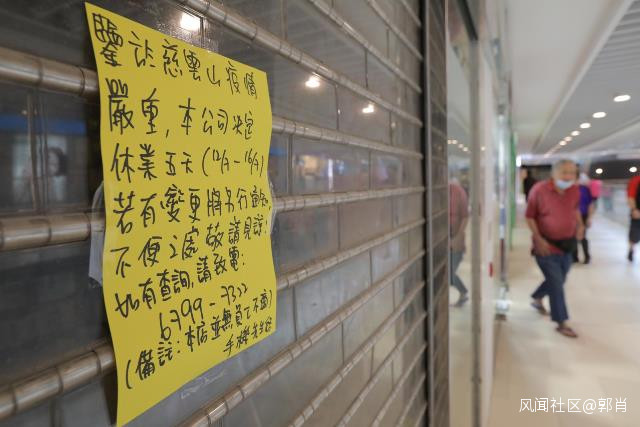 鑒 慈雲山疫情
嚴重，本公司決定
休業五天(12/7-16/7)
若有變更將另行通知
不便之處敬請見諒!
如有查詢,請致電:
6799-
(備註:本店並無員工不適)
风闻社区@郭肖